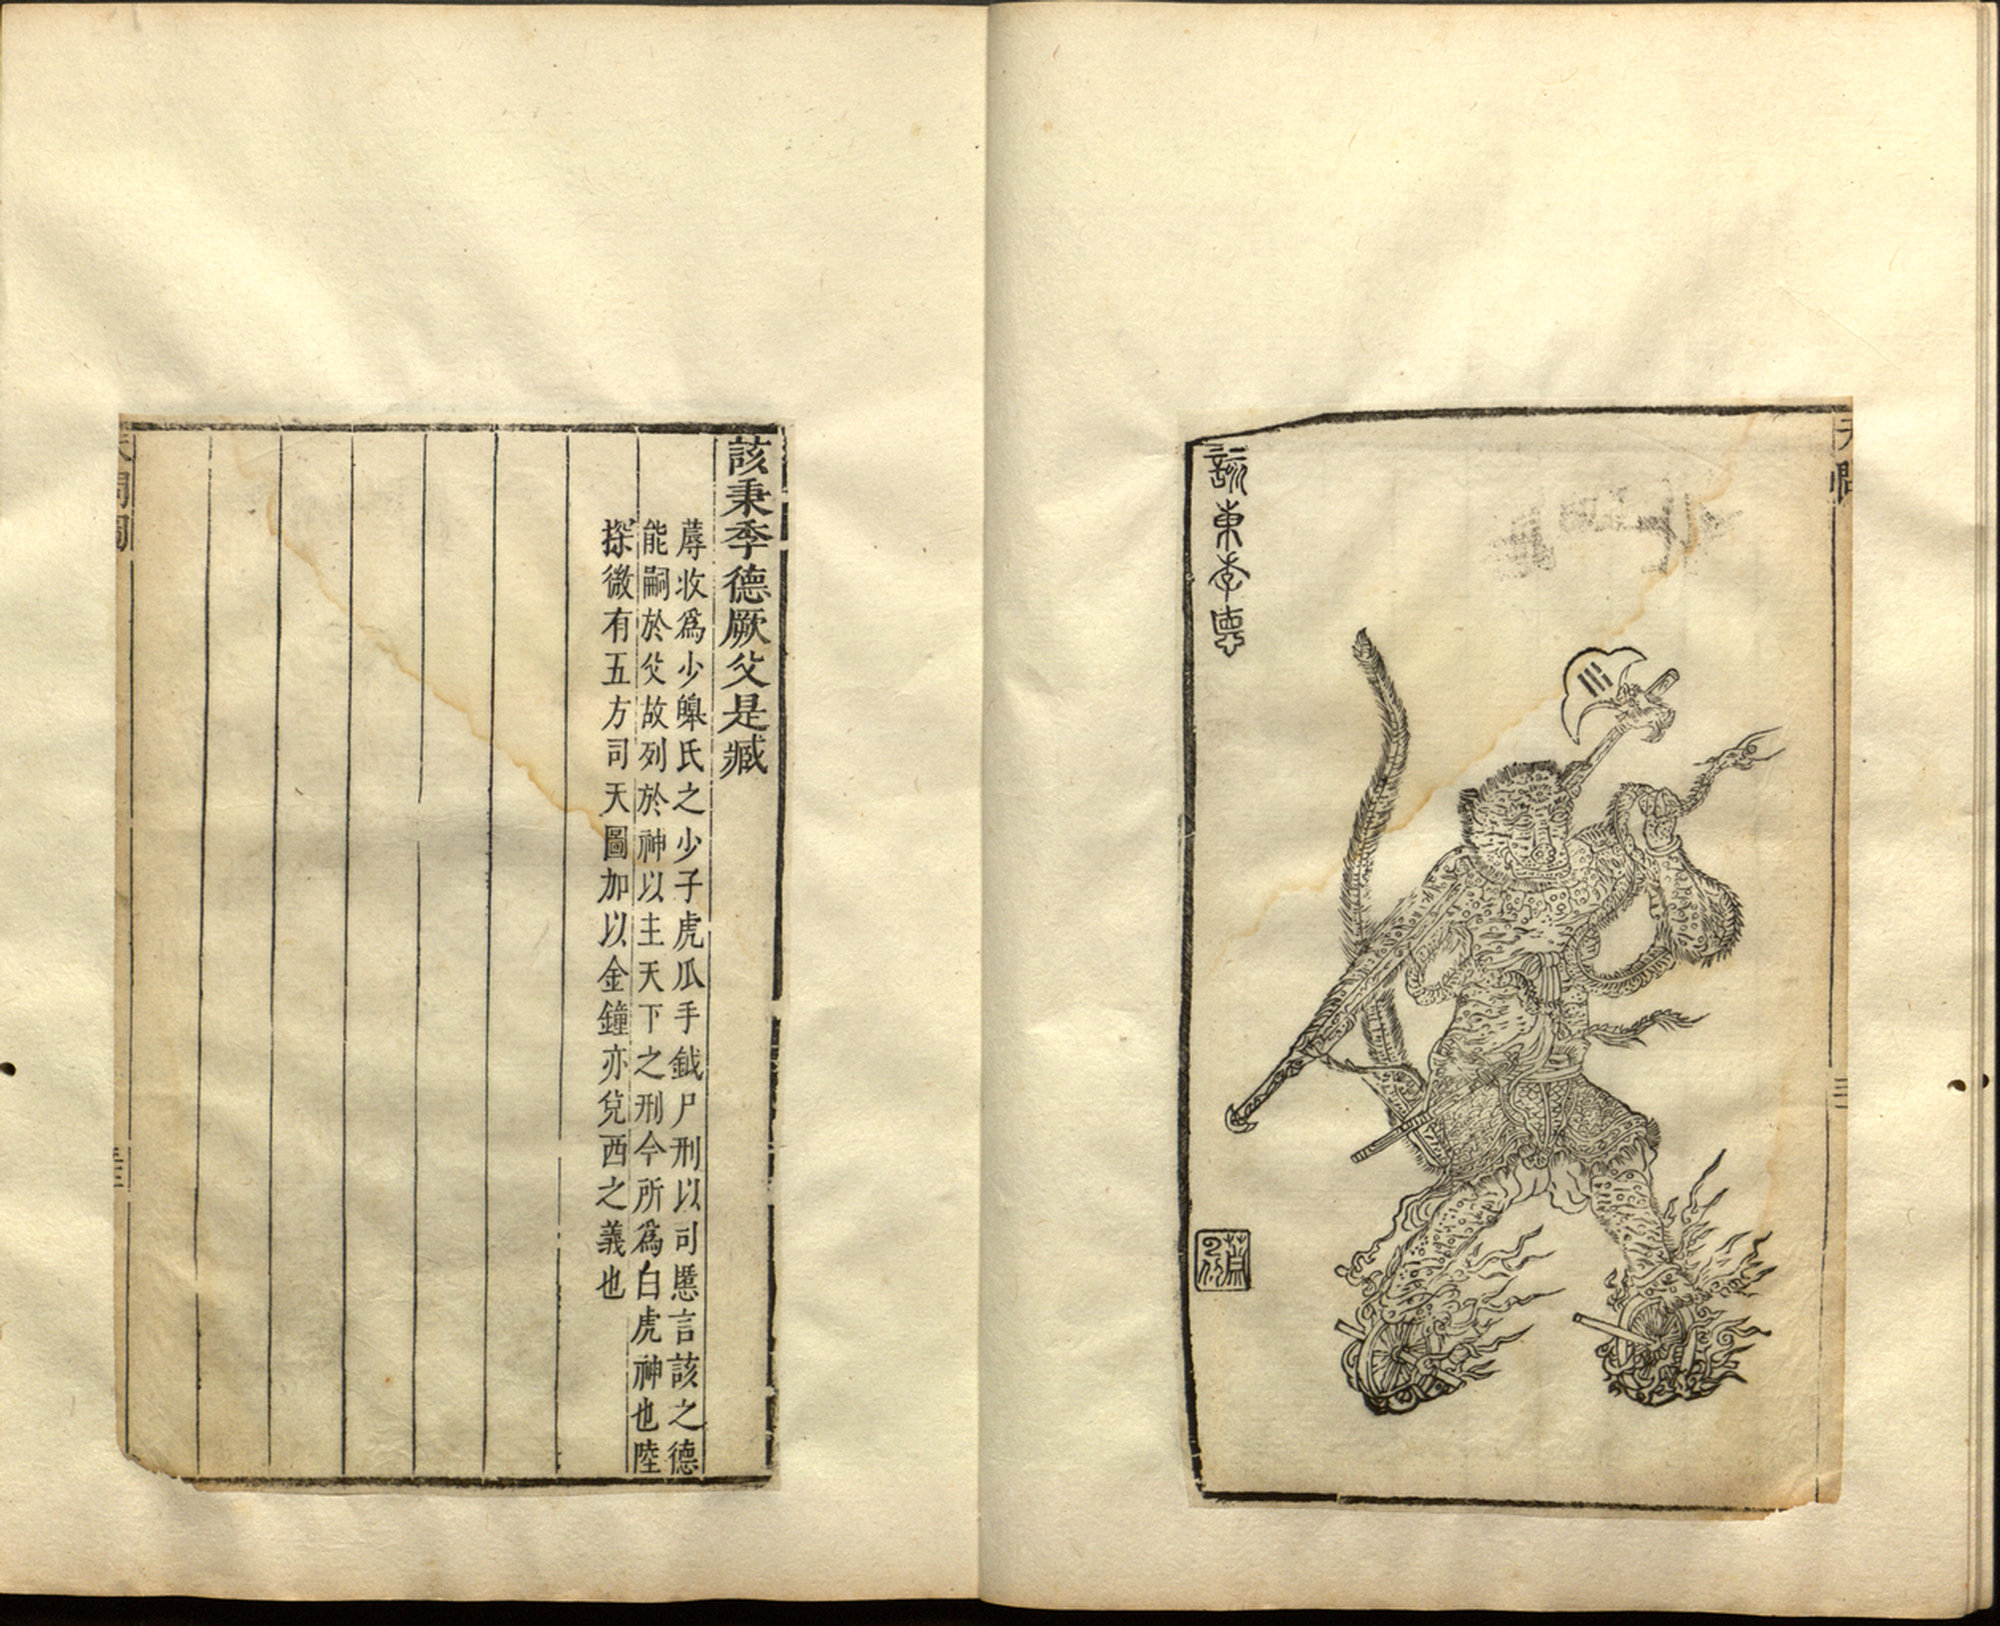 天問
該秉季德
蕭云从
該秉季德厥父是臧
蓐收爲少皞氏之少子虎瓜手鉞尸刑以司慝言該之德
能嗣於父故列於神以主天下之刑今所爲白虎神也陸
探微有五方司天圖加以金鐘亦兌西之義也
天問圖